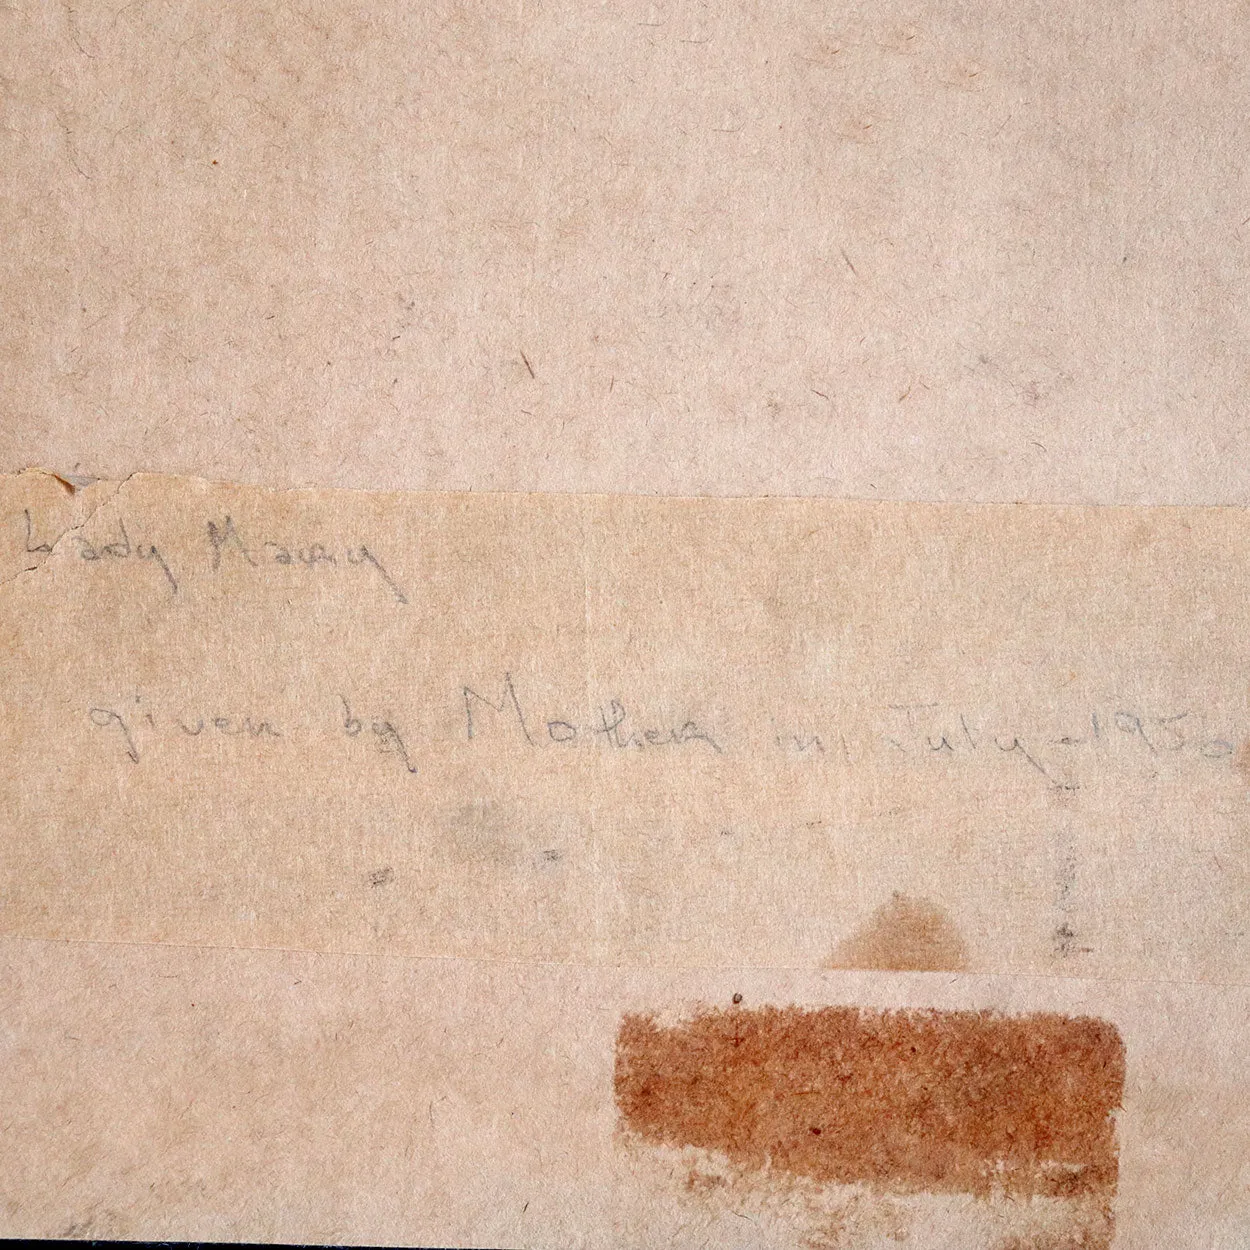 Lady Mary
given by Mother in July - 1950